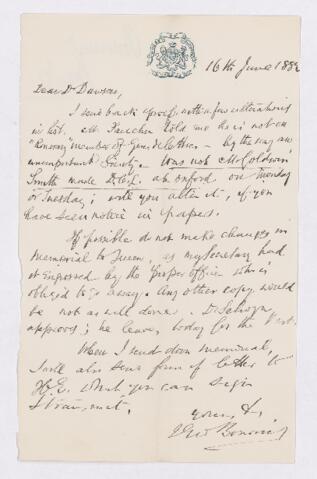 16th June 1882
Dear Dr Dawson,
I send back proof with a few alterations
in list. Mr Faucher told me he is not an
Honorary member of Gens de Lettres - by the way an
unimportant Society. Was not Mr Goldwin
Smith made D.C.L. at Oxford on Monday
or Tuesday; will you alter it, if you
have seen notice in papers.
If possible do not make changes in
memorial to Queen, as my Secretary had
it engrossed by the proper officer who is
obliged to go away. Any other copy would
be not as well done. Dr Selwyn
approves; he leaves today for the West.
When I send down memorial,
I will also send form of letter to
H.E. which you can sign
& transmit.
yours, &c,
Bourinot